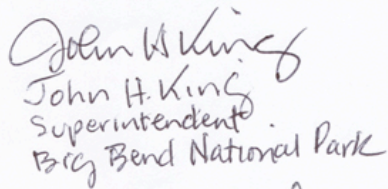 John H King
John H. King
Superintendent
Big Bend National Park